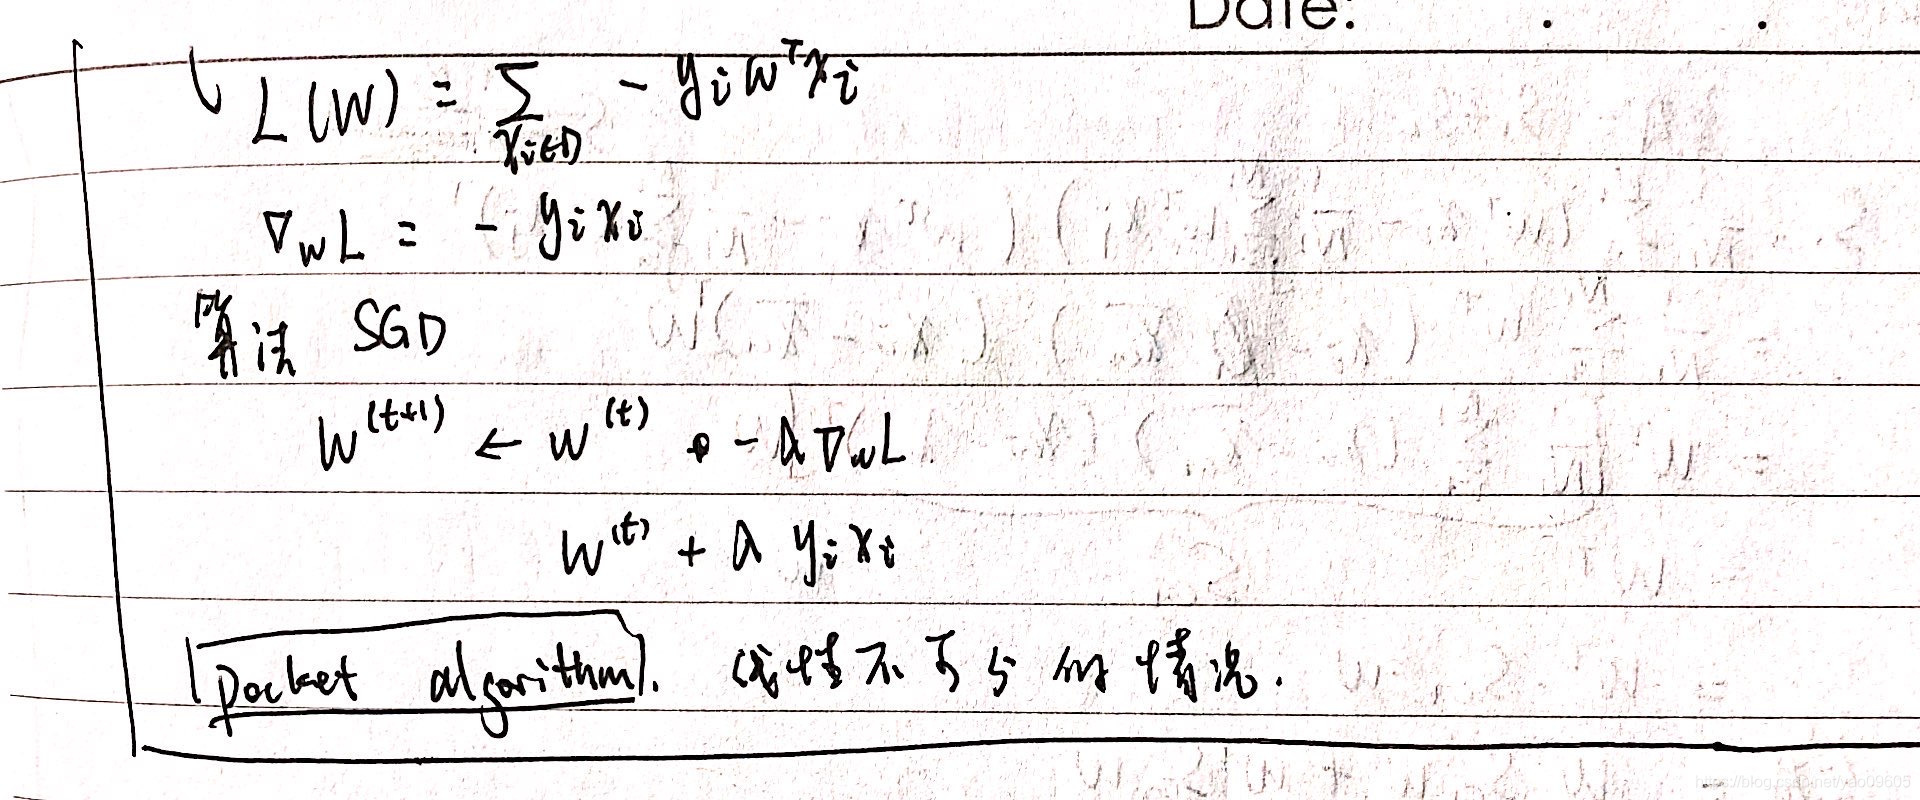 Date: . .
L(W) = ∑ - yᵢ wᵀxᵢ
xᵢ∈D
∇wL = - yᵢ xᵢ
算法 SGD
W⁽ᵗ⁺¹⁾ ← w⁽ᵗ⁾ - λ∇wL
W⁽ᵗ⁾ + λ yᵢ xᵢ
pocket algorithm. 线性不可分的情况.
https://blog.csdn.net/yao09605